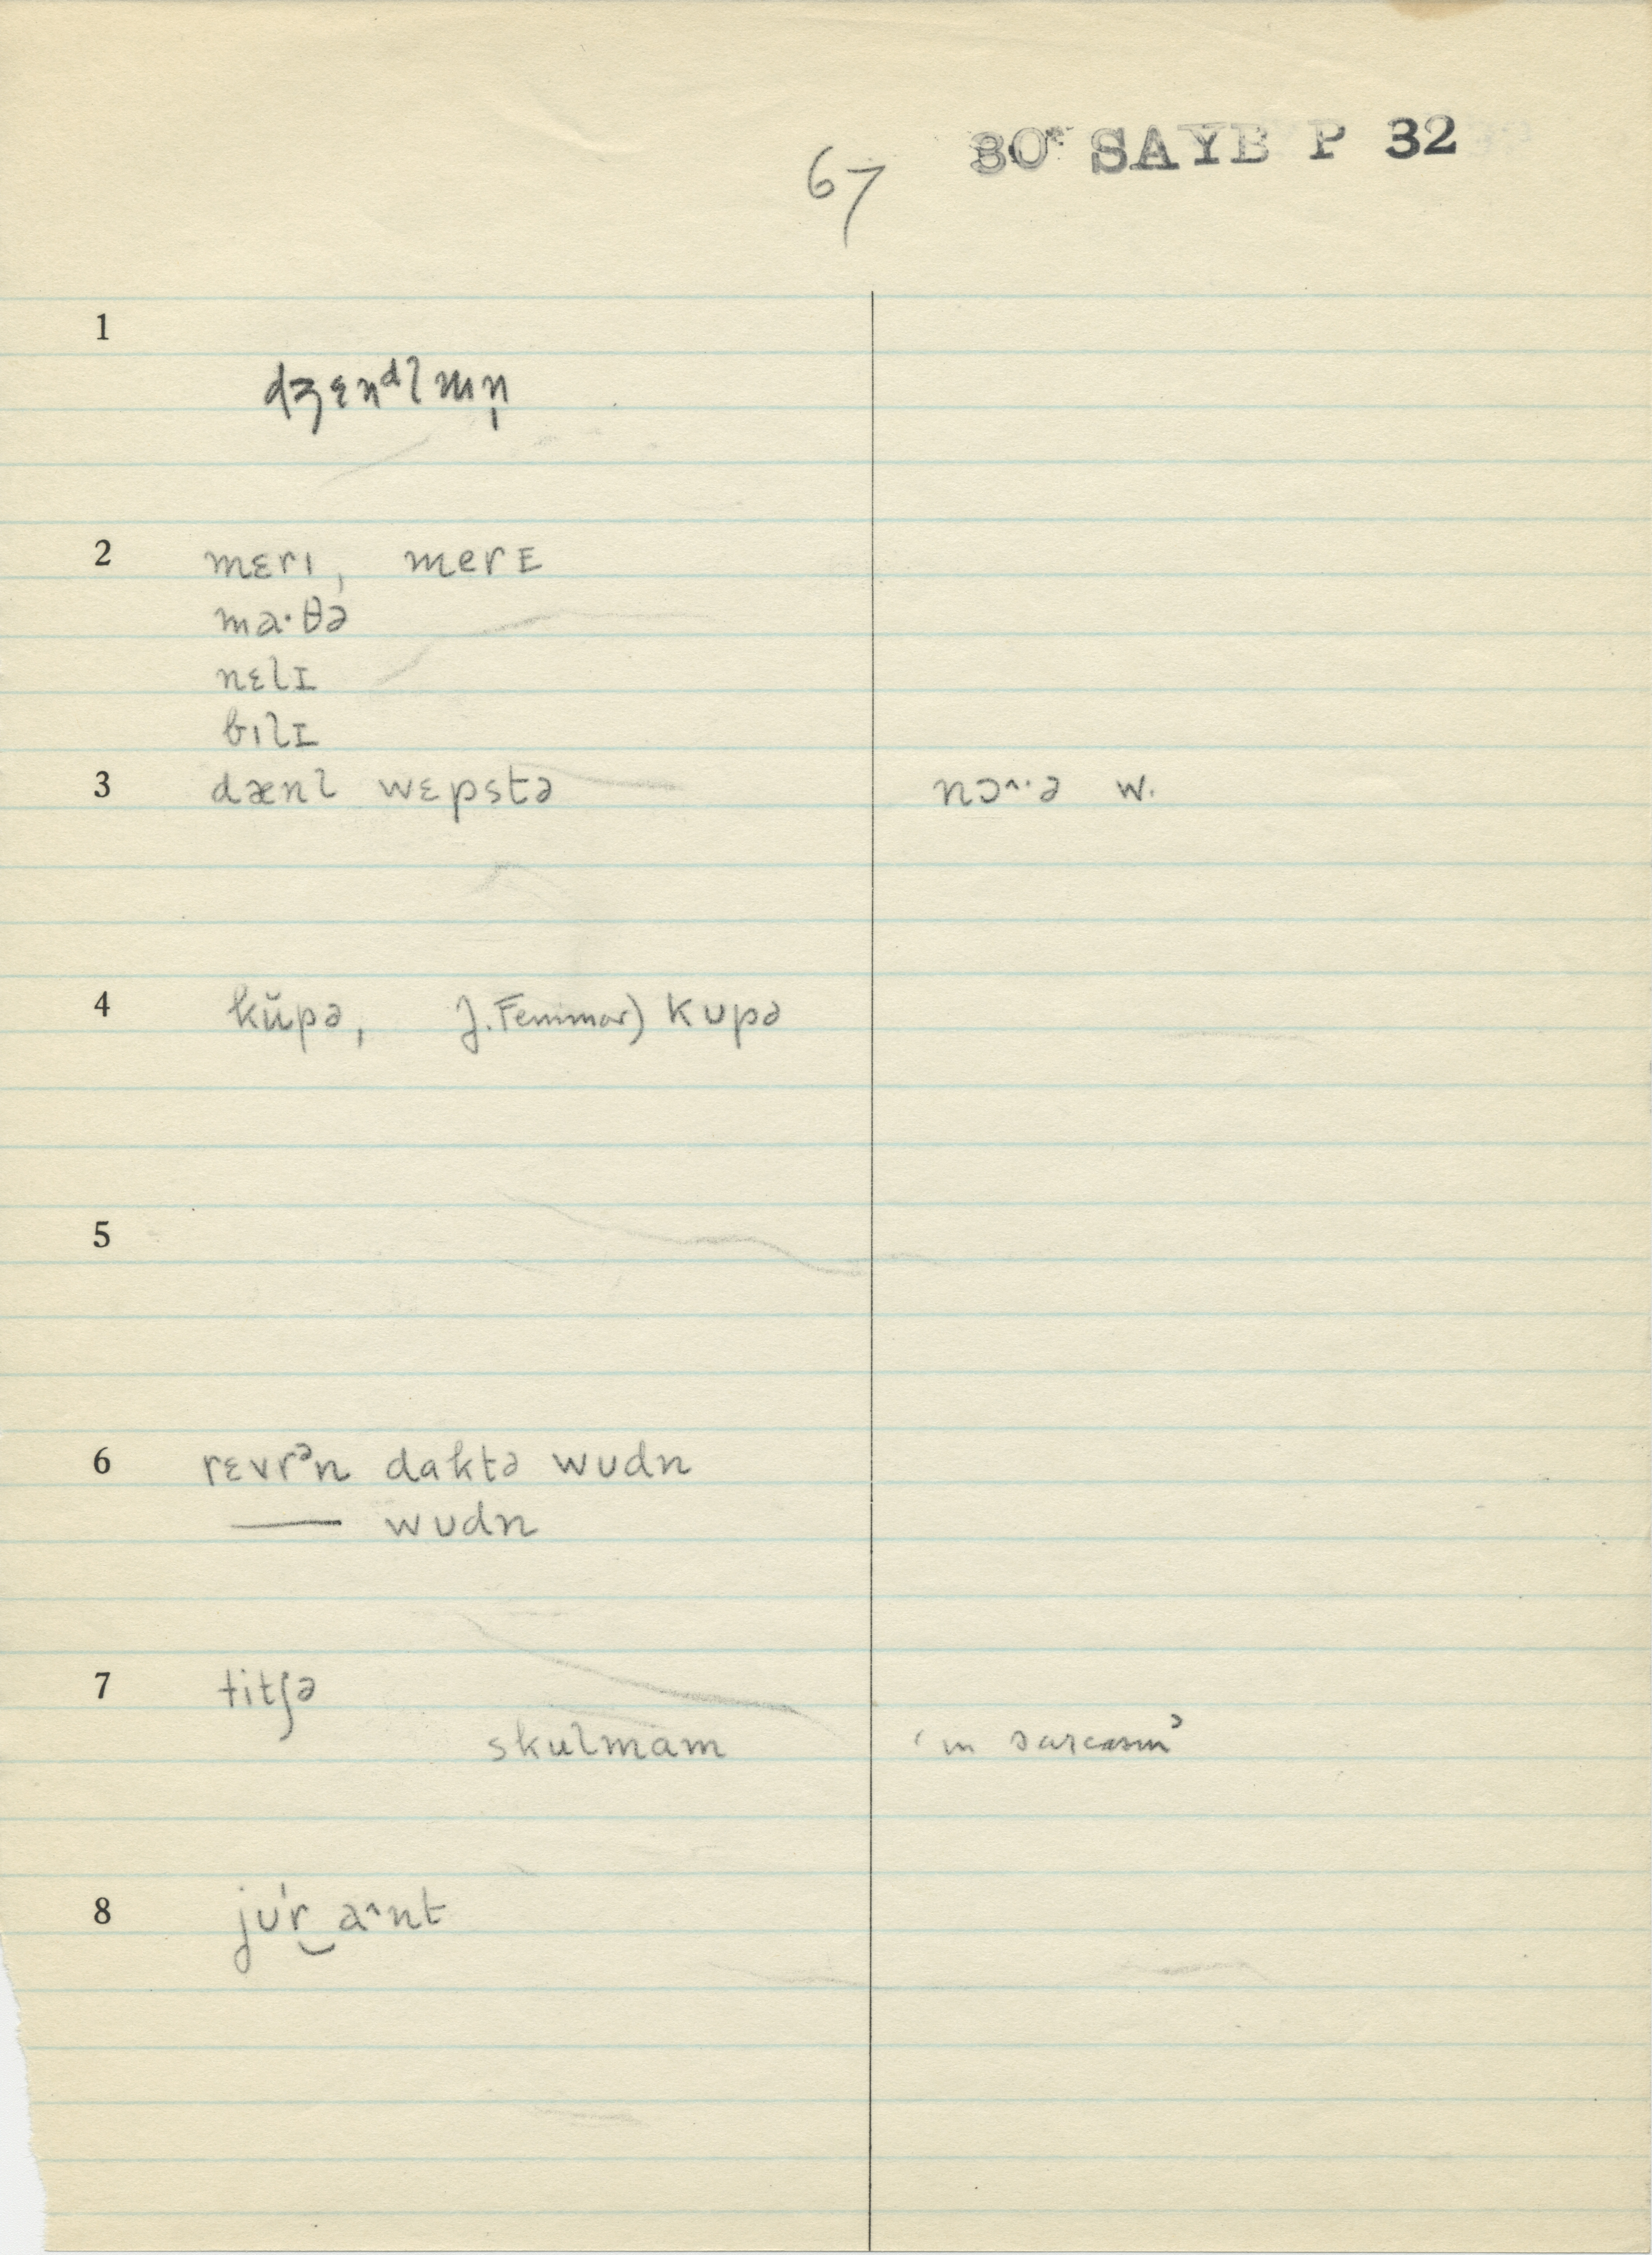 67 30 SAYB P 32
1
dʒɛnᵈlmn̩
2 mɛrɪ, merE
ma·θə
nɛlɪ
bɪlɪ
3 dænl wɛpstə nɔ^·ə w.
4 kŭpə, J. Femmar) kupə
5
6 rɛvrᵊn daktə wudn
—— wudn
7 titʃə
skulmam ‘in sarcasm’
8 ju'r‿a^nt